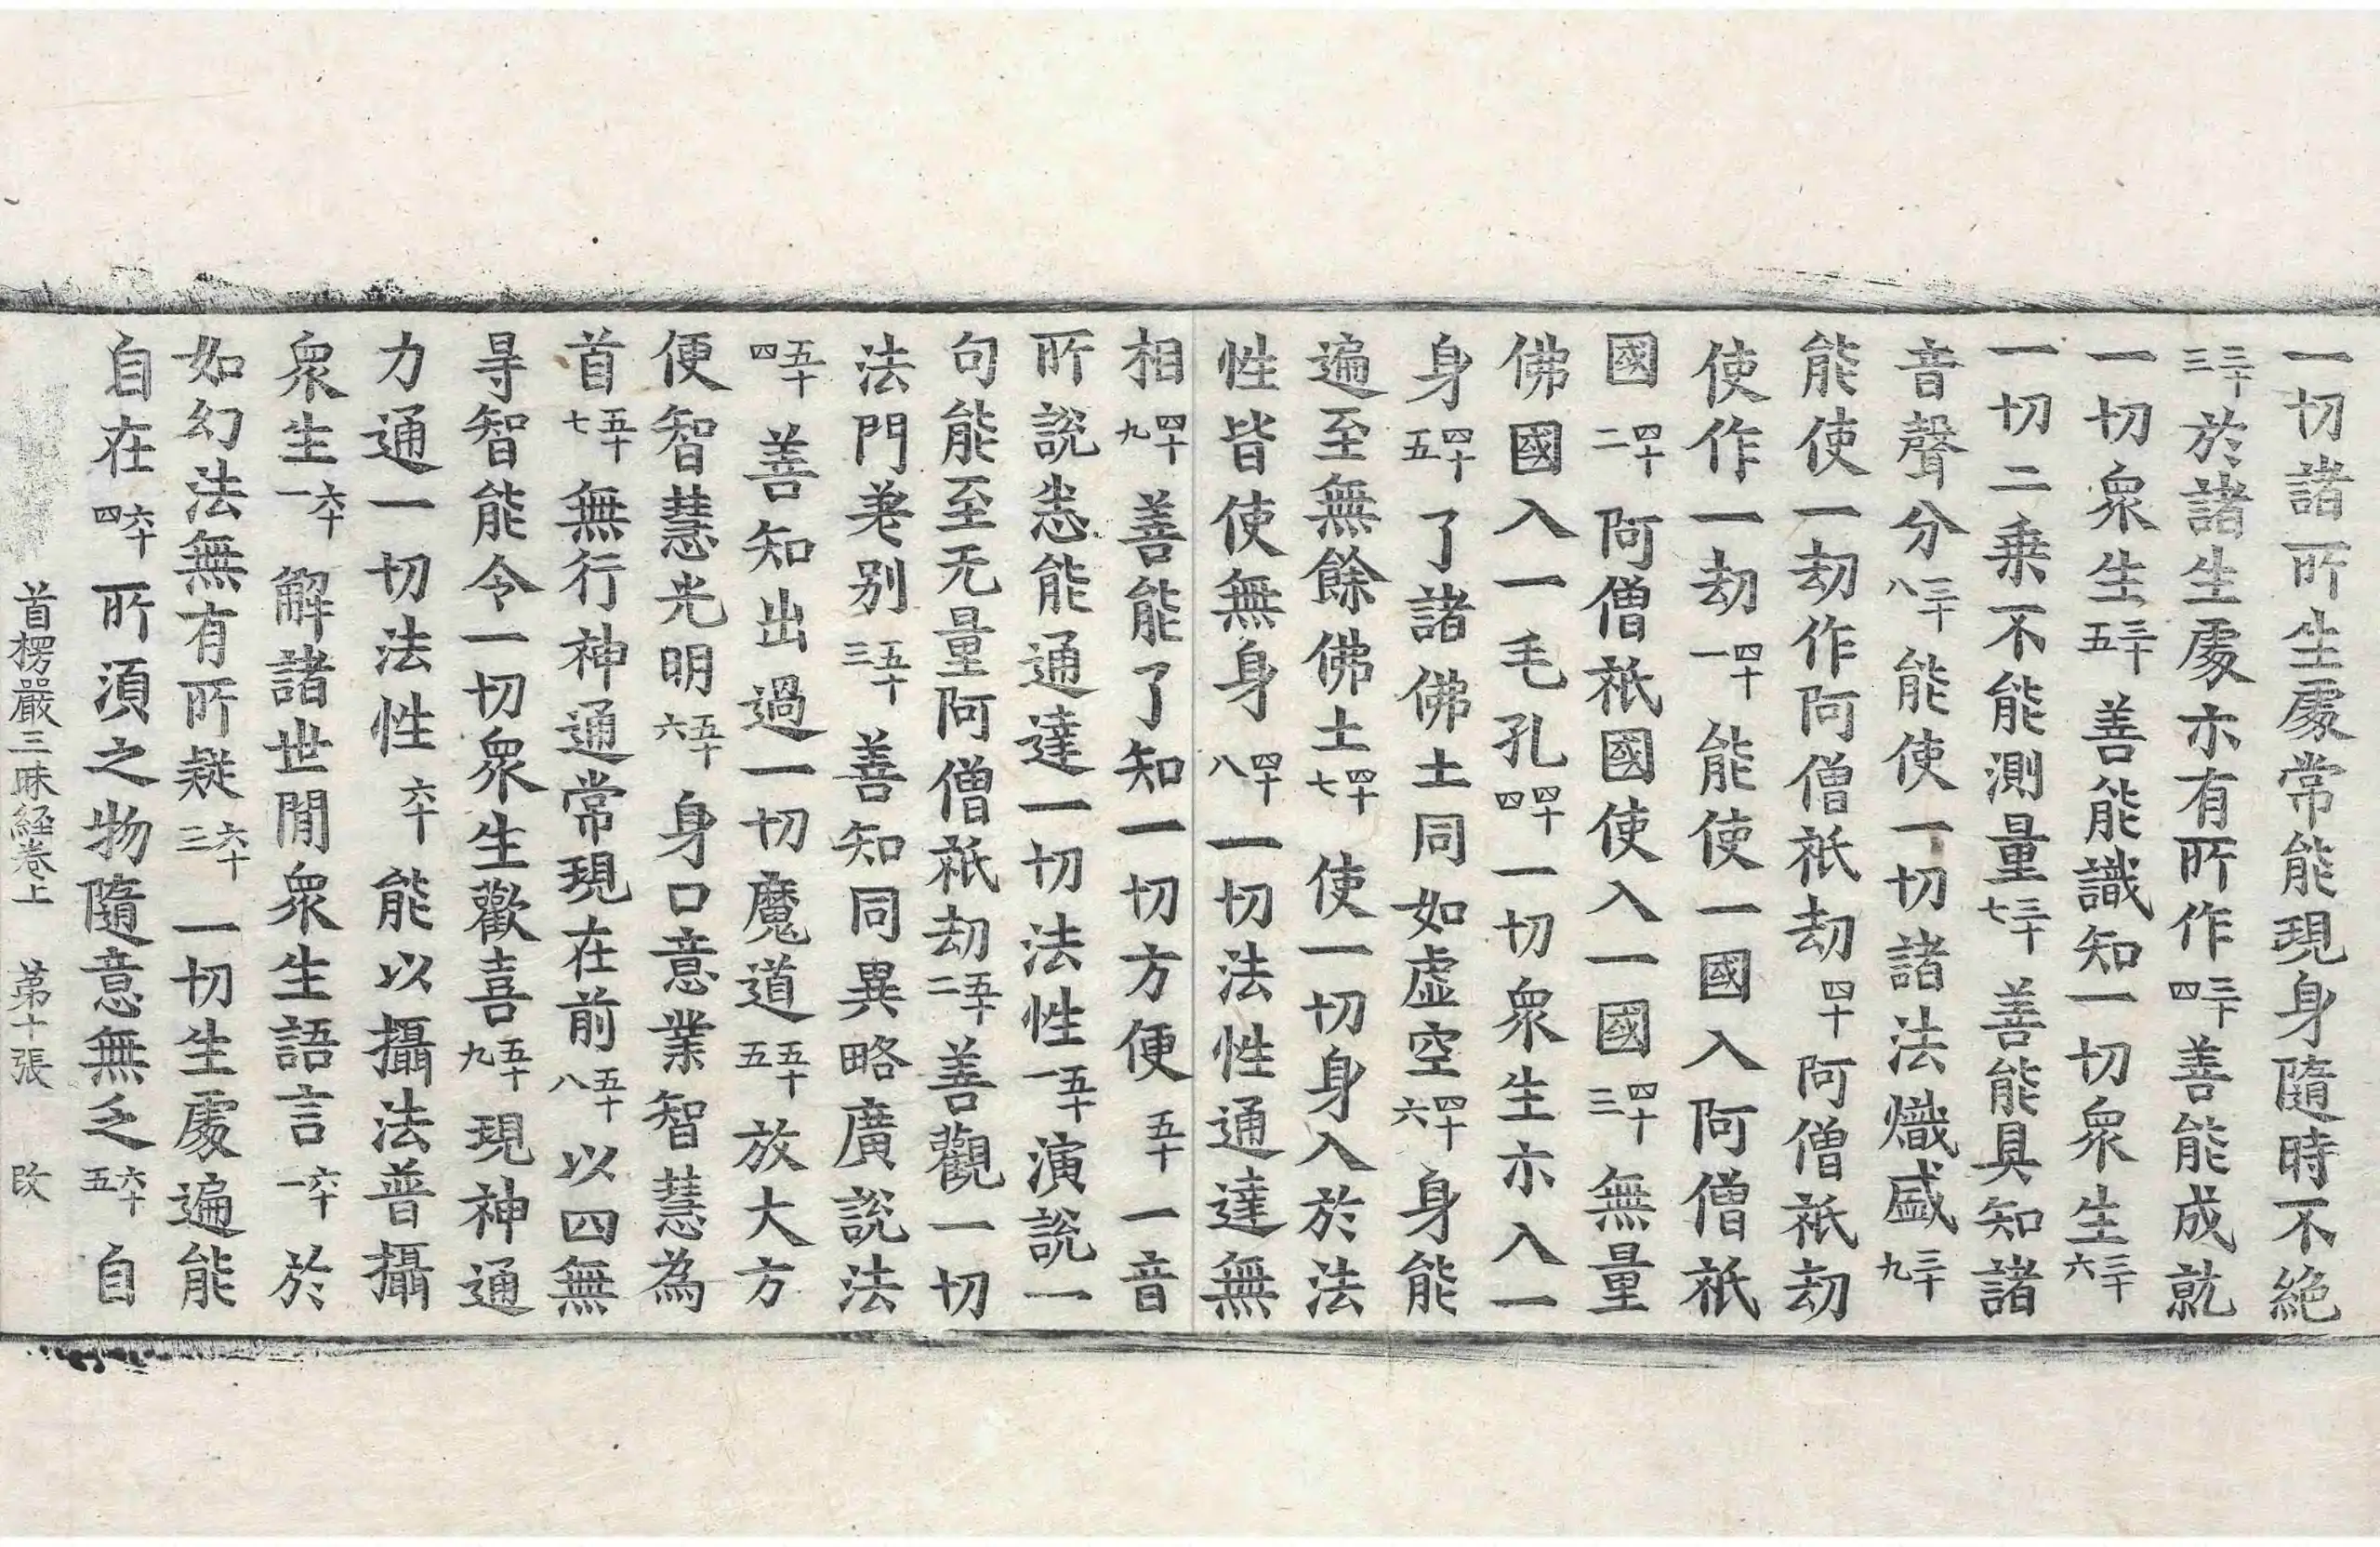 一切諸所生處常能現身隨時不絶
三十三於諸生處亦有所作三十四善能成就
一切衆生三十五善能識知一切衆生三十六
一切二乗不能測量三十七善能具知諸
音聲分三十八能使一切諸法熾盛三十九
能使一劫作阿僧祇劫四十阿僧祇劫
使作一劫四十一能使一國入阿僧祇
國四十二阿僧祇國使入一國四十三無量
佛國入一毛孔四十四一切衆生亦入一
身四十五了諸佛土同如虛空四十六身能
遍至無餘佛土四十七使一切身入於法
性皆使無身四十八一切法性通達無
相四十九善能了知一切方便五十一音
所說悉能通達一切法性五十一演說一
句能至无量阿僧祇劫五十二善觀一切
法門差別五十三善知同異略廣說法
五十四善知出過一切魔道五十五放大方
便智慧光明五十六身口意業智慧為
首五十七無行神通常現在前五十八以四無
㝵智能令一切衆生歡喜五十九現神通
力通一切法性六十能以攝法普攝
衆生六十一解諸世閒衆生語言六十一於
如幻法無有所疑六十三一切生處遍能
自在六十四所須之物隨意無乏六十五自
首楞嚴三昧經卷上 第十張 改